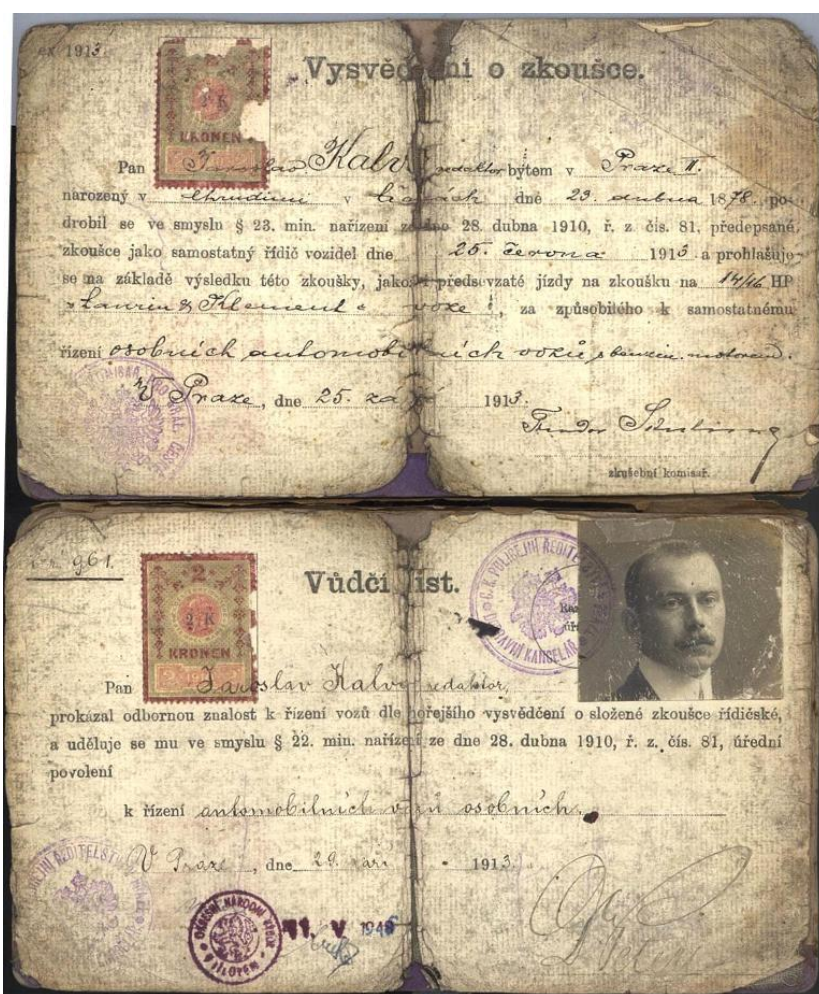 1913.
Vysvěd ní o zkoušce.
2
2 K
KRONEN
Pan Jaroslav Kalv redaktor bytem v Praze II.
narozený v Chrudimi v Čechách dne 23. dubna 1878. po-
drobil se ve smyslu § 23. min. nařízení ze dne 28. dubna 1910, ř. z čís. 81, předepsané
zkoušce jako samostatný řídič vozidel dne 25. června 1913 a prohlašuje
se na základě výsledku této zkoušky, jakož i předsevzaté jízdy na zkoušku na 14/16 HP
„Laurin & Klement" voze, za způsobilého k samostatnému
řízení osobních automobilních vozů s benzin. motorem.
V Praze, dne 25. zá 1913.
zkušební komisař.
961.
2
2 K
KRONEN
Vůdčí list.
C. K. POLICEJNÍ ŘEDITELSTVÍ
Pan Jaroslav Kalv redaktor,
prokázal odbornou znalost k řízení vozů dle hořejšího vysvědčení o složené zkoušce řídičské,
a uděluje se mu ve smyslu § 22. min. nařízení ze dne 28. dubna 1910, ř. z. čís. 81, úřední
povolení
k řízení automobilních vozů osobních.
V Praze, dne 29. září 1913.
OKRESNÍ NÁRODNÍ VÝBOR
11. V 1946